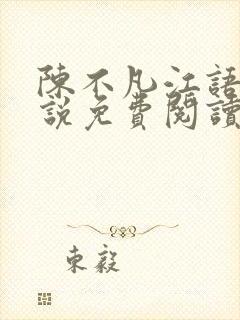 陳不凡江語
說免費閱讀
東毅